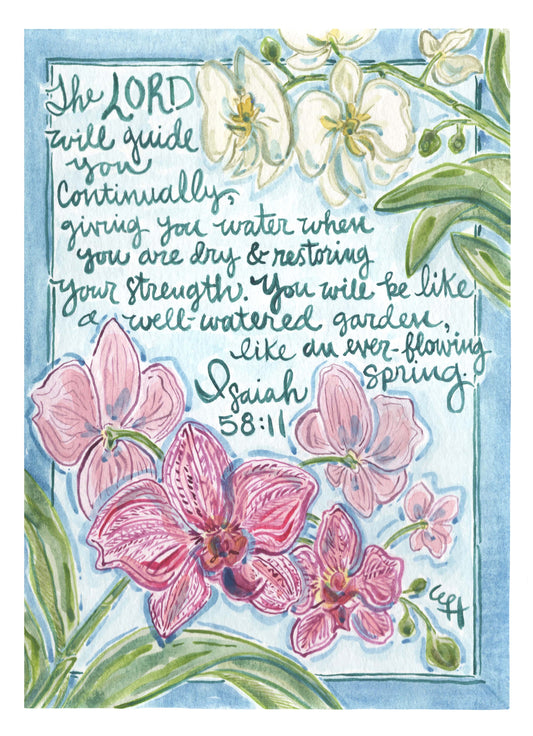 The LORD
will guide
you
Continually,
giving you water when
you are dry & restoring
your strength. You will be like
a well-watered garden,
like an ever-flowing
spring.
Isaiah
58:11